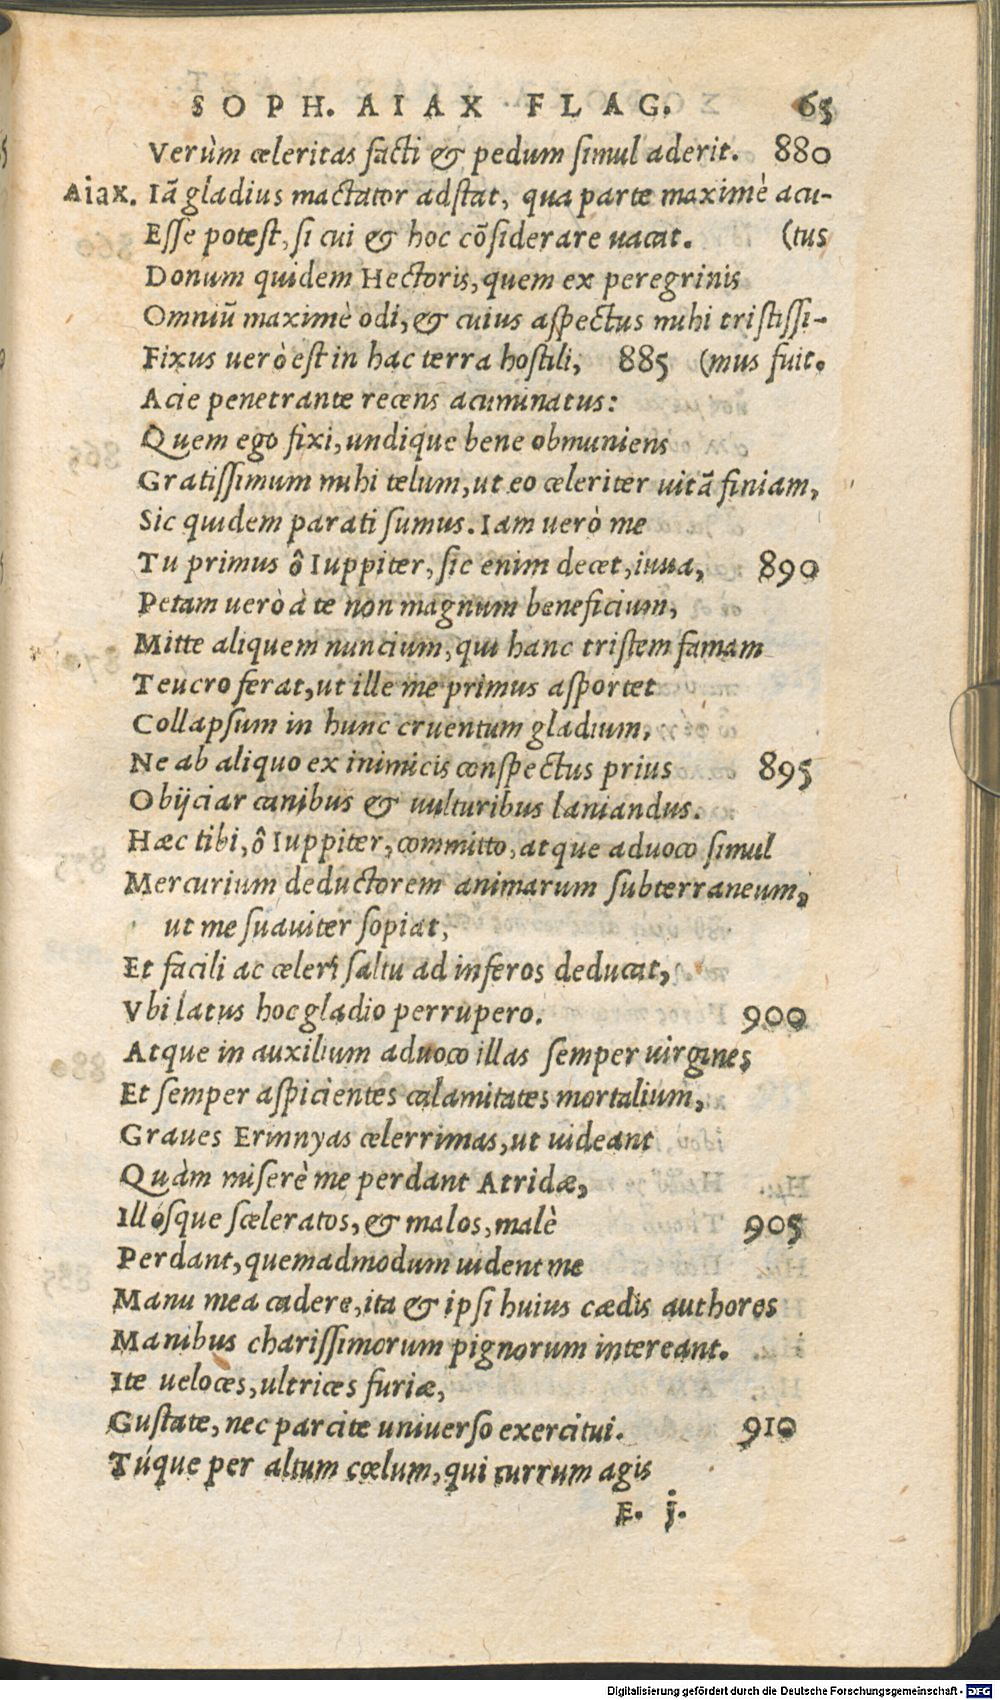 SOPH. AIAX FLAG. 65
Verùm celeritas facti & pedum simul aderit. 880
Aiax. Iā gladius mactator adstat, qua parte maximè acu-
Esse potest, si cui & hoc cōsiderare uacat. (tus
Donum quidem Hectoris, quem ex peregrinis
Omniū maximè odi, & cuius aspectus mihi tristissi-
Fixus uerò est in hac terra hostili, 885 (mus fuit.
Acie penetrante recens acuminatus:
Quem ego fixi, undique bene obmuniens
Gratissimum mihi telum, ut eo celeriter uitā finiam,
Sic quidem parati sumus. Iam uerò me
Tu primus ô Iuppiter, sic enim decet, iuua, 890
Petam uerò à te non magnum beneficium,
Mitte aliquem nuncium, qui hanc tristem famam
Teucro ferat, ut ille me primus asportet
Collapsum in hunc cruentum gladium,
Ne ab aliquo ex inimicis conspectus prius 895
Obijciar canibus & uulturibus laniandus.
Hæc tibi, ô Iuppiter, committo, atque aduoco simul
Mercurium deductorem animarum subterraneum,
ut me suauiter sopiat,
Et facili ac celeri saltu ad inferos deducat,
Vbi latus hoc gladio perrupero. 900
Atque in auxilium aduoco illas semper uirgines
Et semper aspicientes calamitates mortalium,
Graues Erinnyas celerrimas, ut uideant
Quàm miserè me perdant Atridæ,
Illósque sceleratos, & malos, malè 905
Perdant, quemadmodum uident me
Manu mea cadere, ita & ipsi huius cædis authores
Manibus charissimorum pignorum intereant.
Ite ueloces, ultrices furiæ,
Gustate, nec parcite uniuerso exercitui. 910
Túque per altum cœlum, qui currum agis
E. j.
Digitalisierung gefördert durch die Deutsche Forschungsgemeinschaft - DFG